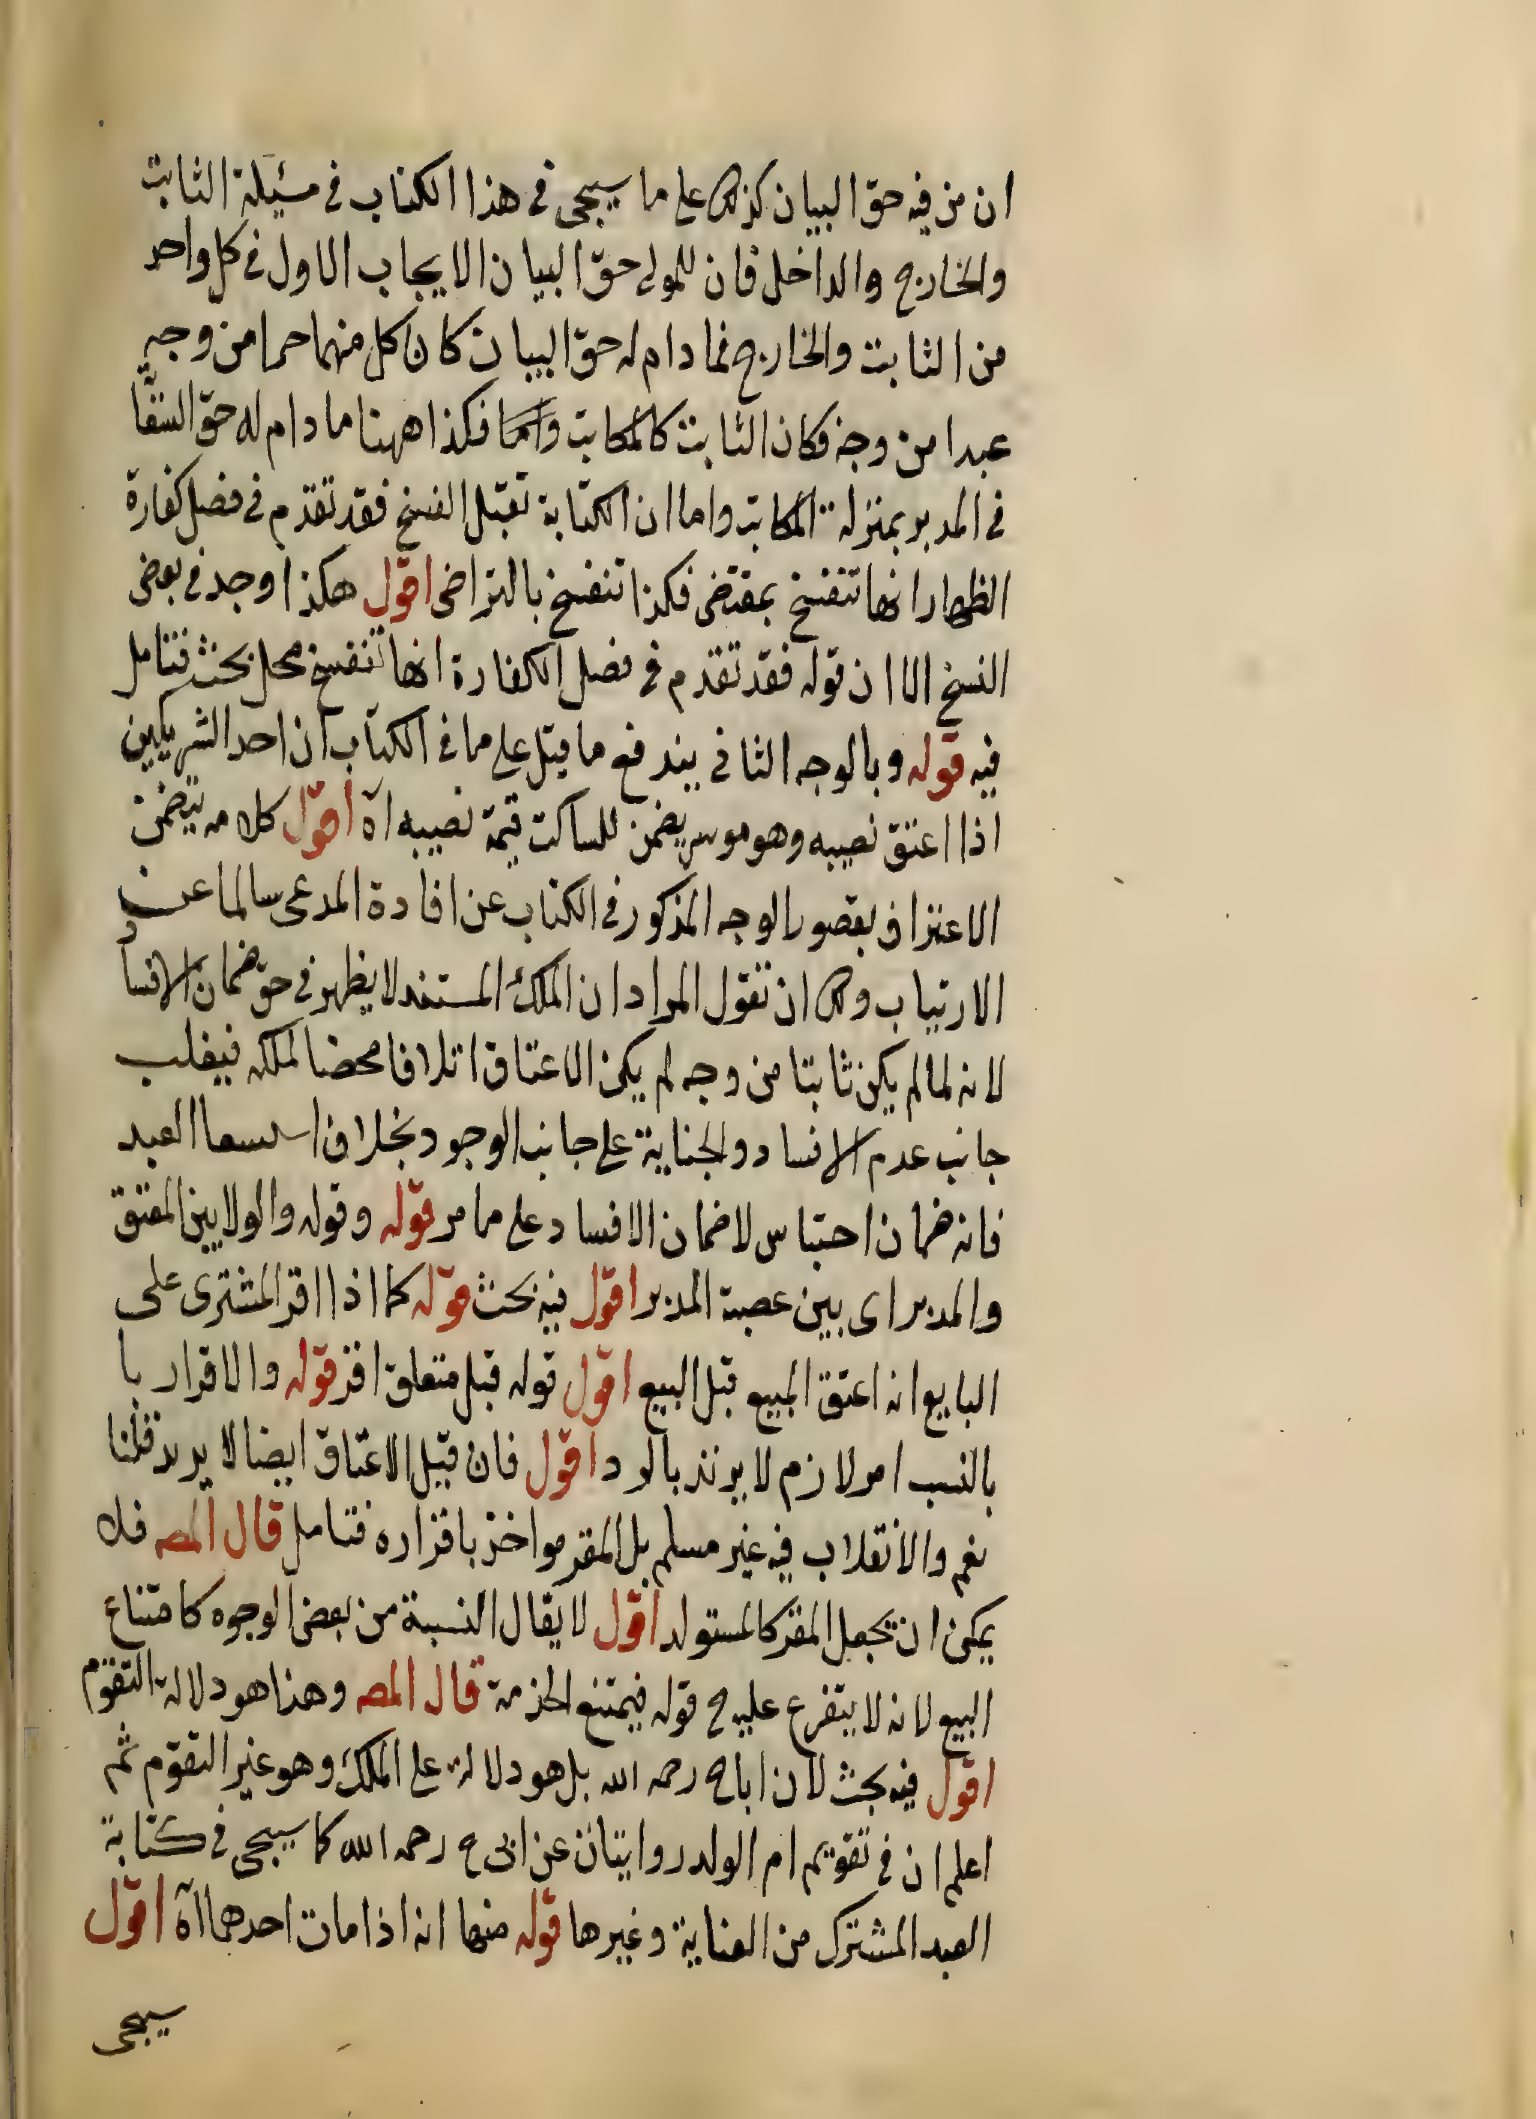 ان من فيه حق البيان كذلك على ما سيجى فى هذا الكتاب فى مسئلة الثابت
والخارج والداخل فان للمولى حق البيان الايجاب الاول فى كل واحد
من الثابت والخارج فما دام له حق البيان كان كل منهما حرا من وجه
عبدا من وجه فكان الثابت كالمكاتب فكذا ههنا ما دام له حق
فى المدبر بمنزلة المكاتب واما ان الكتابة تقبل الفسخ فقد تقدم فى فصل كفارة
الظهار انها تنفسخ بمقتضى فكذا تنفسخ بالتراضى اقول هكذا وجد فى بعض
النسخ الا ان قوله فقد تقدم فى فصل الكفارة انها تنفسخ محل بحث فتامل
فيه قوله وبالوجه الثانى يندفع ما قيل على ما فى الكتاب ان احد الشريكين
اذا اعتق نصيبه وهو موسر يضمن للساكت قيمة نصيبه آه اقول كلامه يتضمن
الاعتراف بقصور الوجه المذكور فى الكتاب عن افادة المدعى سالما عن
الارتياب ولك ان تقول المراد ان الملك المستند لا يظهر فى حق ضمان الافساد
لانه لما لم يكن ثابتا من وجه لم يكن الاعتاق اتلافا محضا لملكه فيغلب
جانب عدم الافساد والجناية على جانب الوجود بخلاف استسعا العبد
فانه ضمان احتباس لا ضمان الافساد على ما مر قوله وقوله والولا بين المعتق
والمدبر اى بين عصبة المدبر اقول فيه بحث قوله كما اذا اقر المشترى على
البايع انه اعتق المبيع قبل البيع اقول قوله قبل متعلق اقر قوله والاقرار با
بالنسب امر لازم لا يرتد بالرد اقول فان قيل الاعتاق ايضا لا يرتد قلنا
نعم والانقلاب فيه غير مسلم بل المقر مواخذ باقراره فتامل قال المصـ فلا
يمكن ان يجعل المقر كالمستولد اقول لا يقال النسبة من بعض الوجوه كامتناع
البيع لانه لا يتفرع عليه ح قوله فيمتنع الخدمة قال المصـ وهذا هو دلالة التقوم
اقول فيه بحث لان اباح رحمه الله بل هو دلالة على الملك وهو غير التقوم ثم
اعلم ان فى تقويم ام الولد روايتان عن ابى ح رحمه الله كما سيجى فى كتابة
العبد المشترك من العناية وغيرها قوله منها انه اذا مات احدهما آه اقول
سيجى